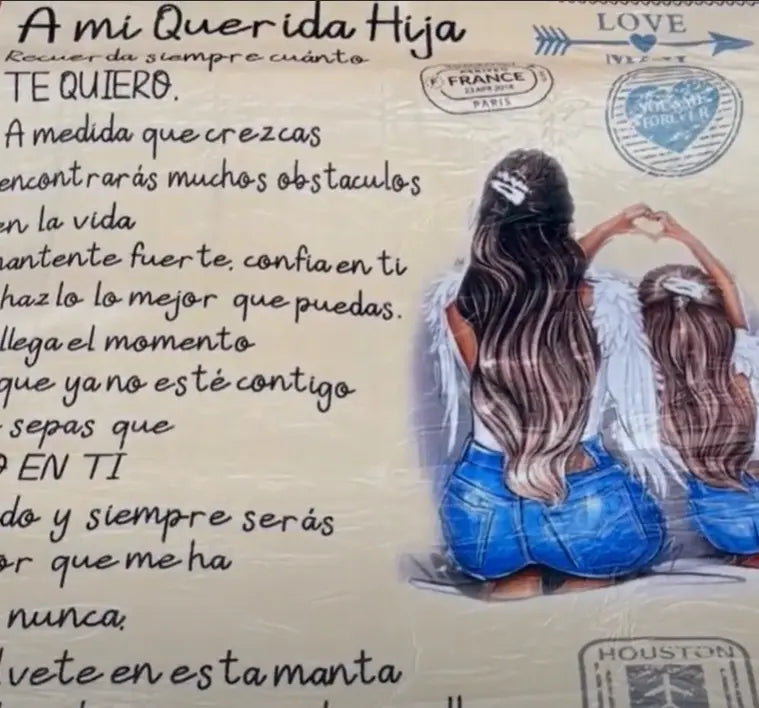 A mi Querida Hija
Recuerda siempre cuánto
TE QUIERO.
A medida que crezcas
encontrarás muchos obstaculos
en la vida
antente fuerte. confia en ti
hazlo lo mejor que puedas.
llega el momento
que ya no esté contigo
sepas que
EN TI
do y siempre serás
or que me ha
nunca.
vete en esta manta
LOVE
FRANCE
23 APR 2018
PARIS
YOU & ME
FOREVER
HOUSTON